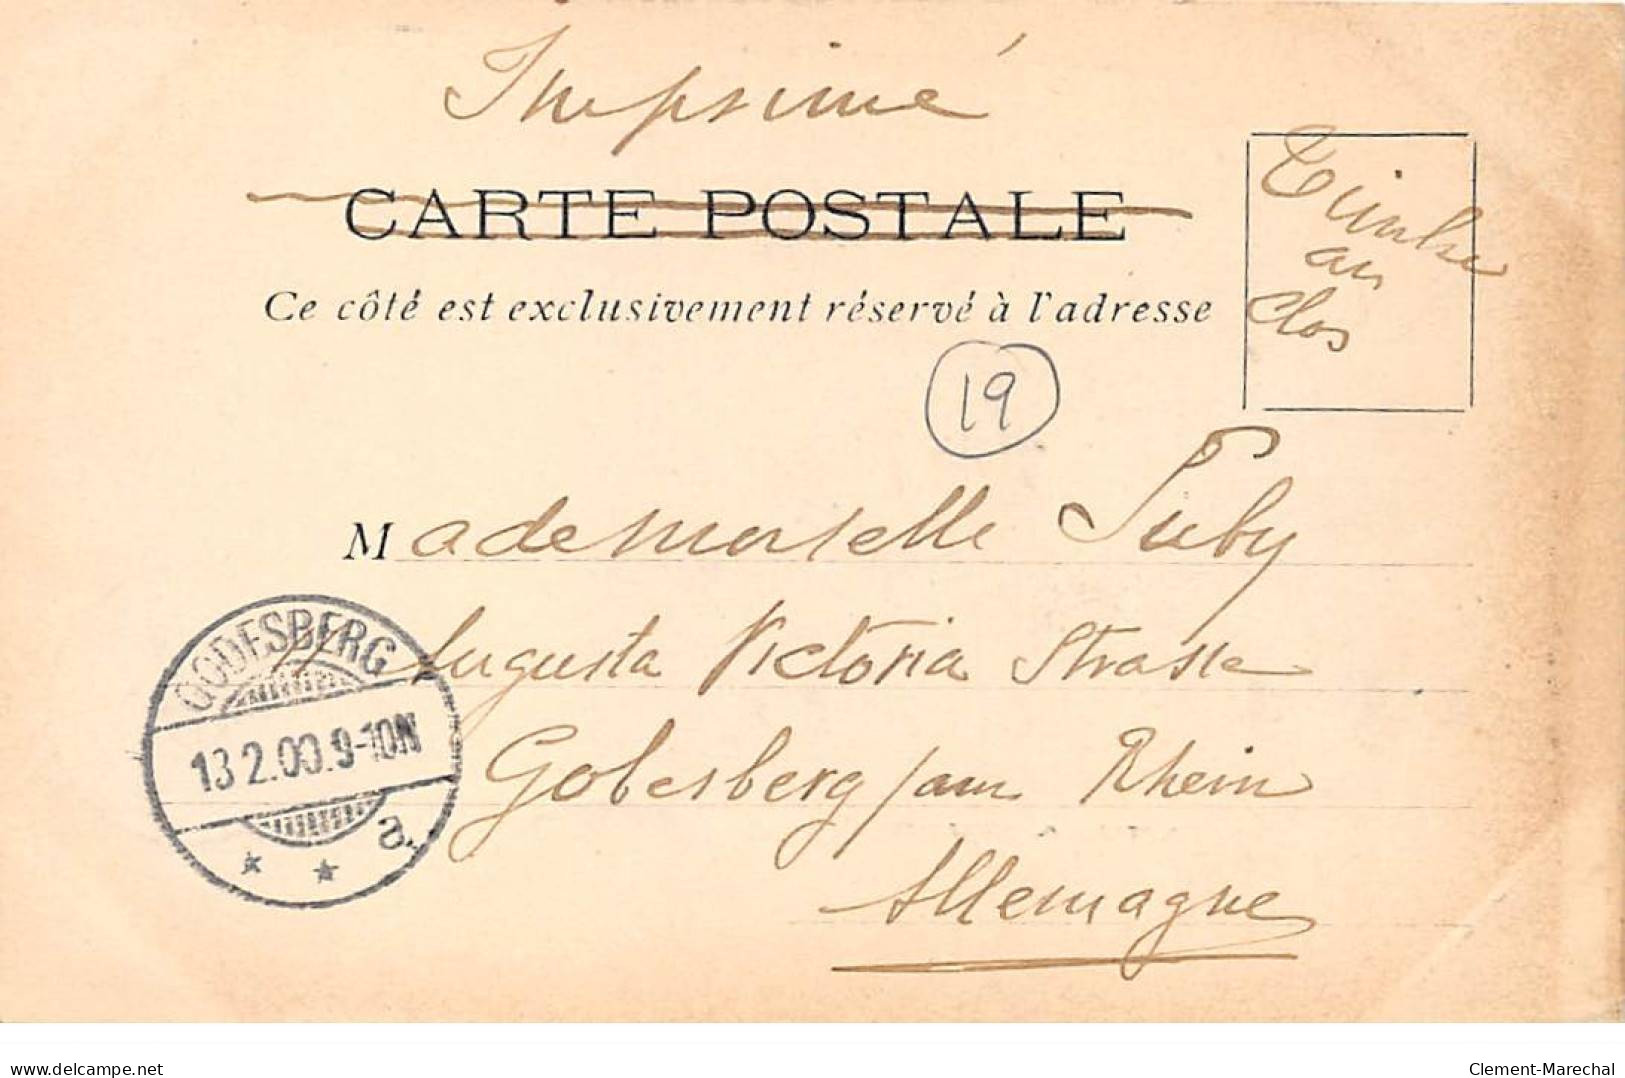 Imprimé
CARTE POSTALE
Ce côté est exclusivement réservé à l'adresse
Timbre
au
dos
19
Mademoiselle Puby
11 Augusta Victoria Strasse
Godesberg / am Rhein
Allemagne
GODESBERG
13.2.00.9-10N
* * a.
delcampe.net
Clement-Marechal